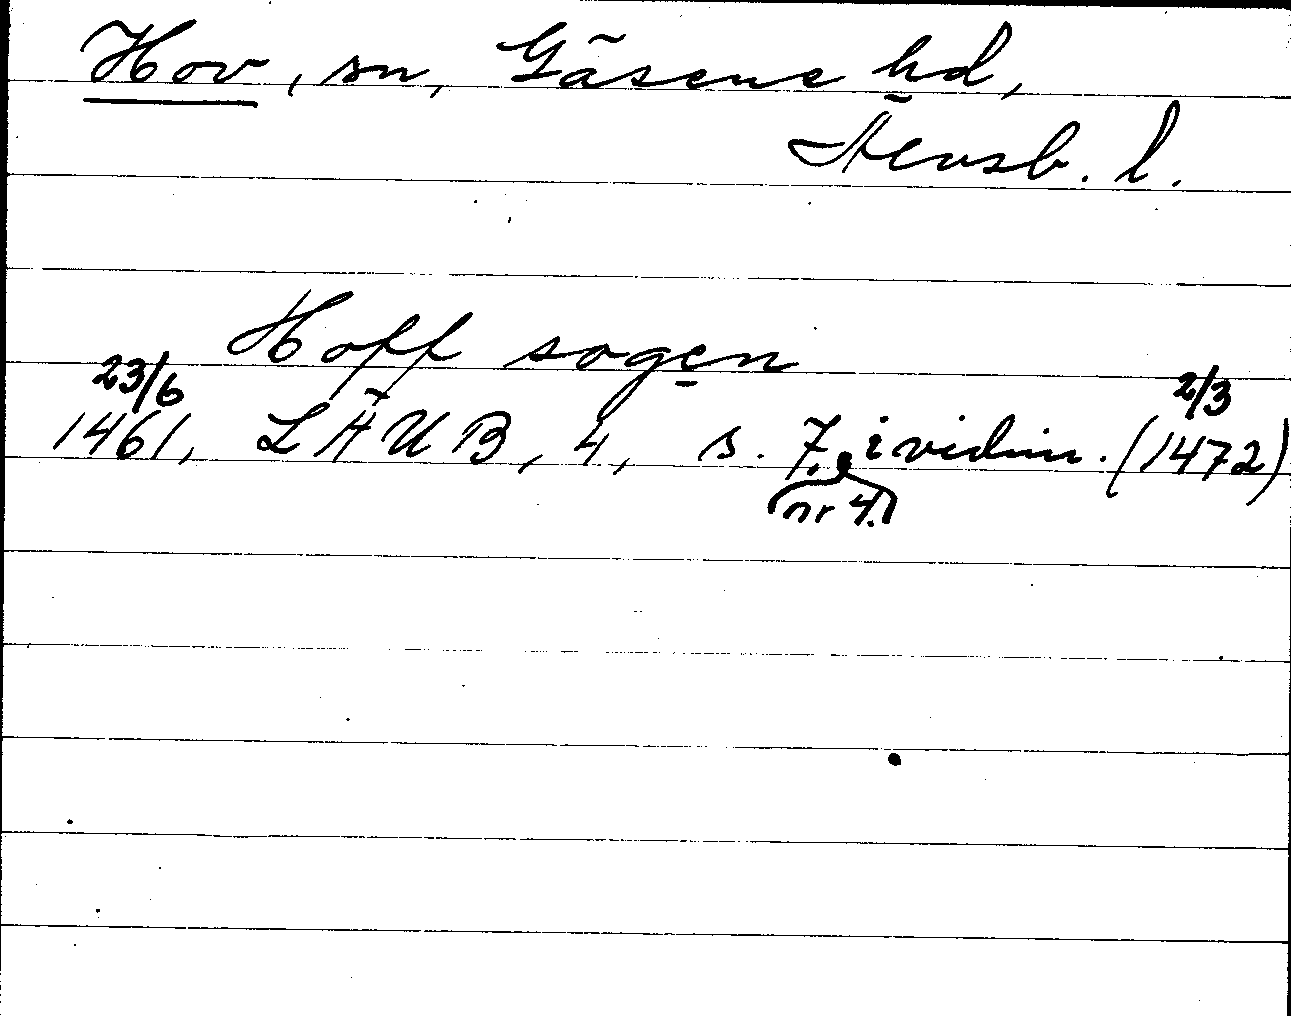 Hov, sn, Gäsene hd,
Älvsb. l.
Hoff sogen
23/6 2/3
1461, LÄUB, 4, s. 7. i vidim. (1472)
nr 4.